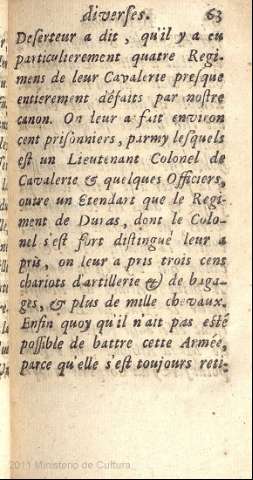 diverses. 63
Deserteur a dit, qu'il y a eu
particulierement quatre Regi-
mens de leur Cavalerie presque
entierement défaits par nostre
canon. On leur a fait environ
cent prisonniers, parmy lesquels
est un Lieutenant Colonel de
Cavalerie & quelques Officiers,
outre un Etendart que le Regi-
ment de Duras, dont le Colo-
nel s'est fort distingué leur a
pris, on leur a pris trois cens
chariots d'artillerie & de baga-
ges, & plus de mille chevaux.
Enfin quoy qu'il n'ait pas esté
possible de battre cette Armée,
parce qu'elle s'est toujours reti-
2011 Ministerio de Cultura